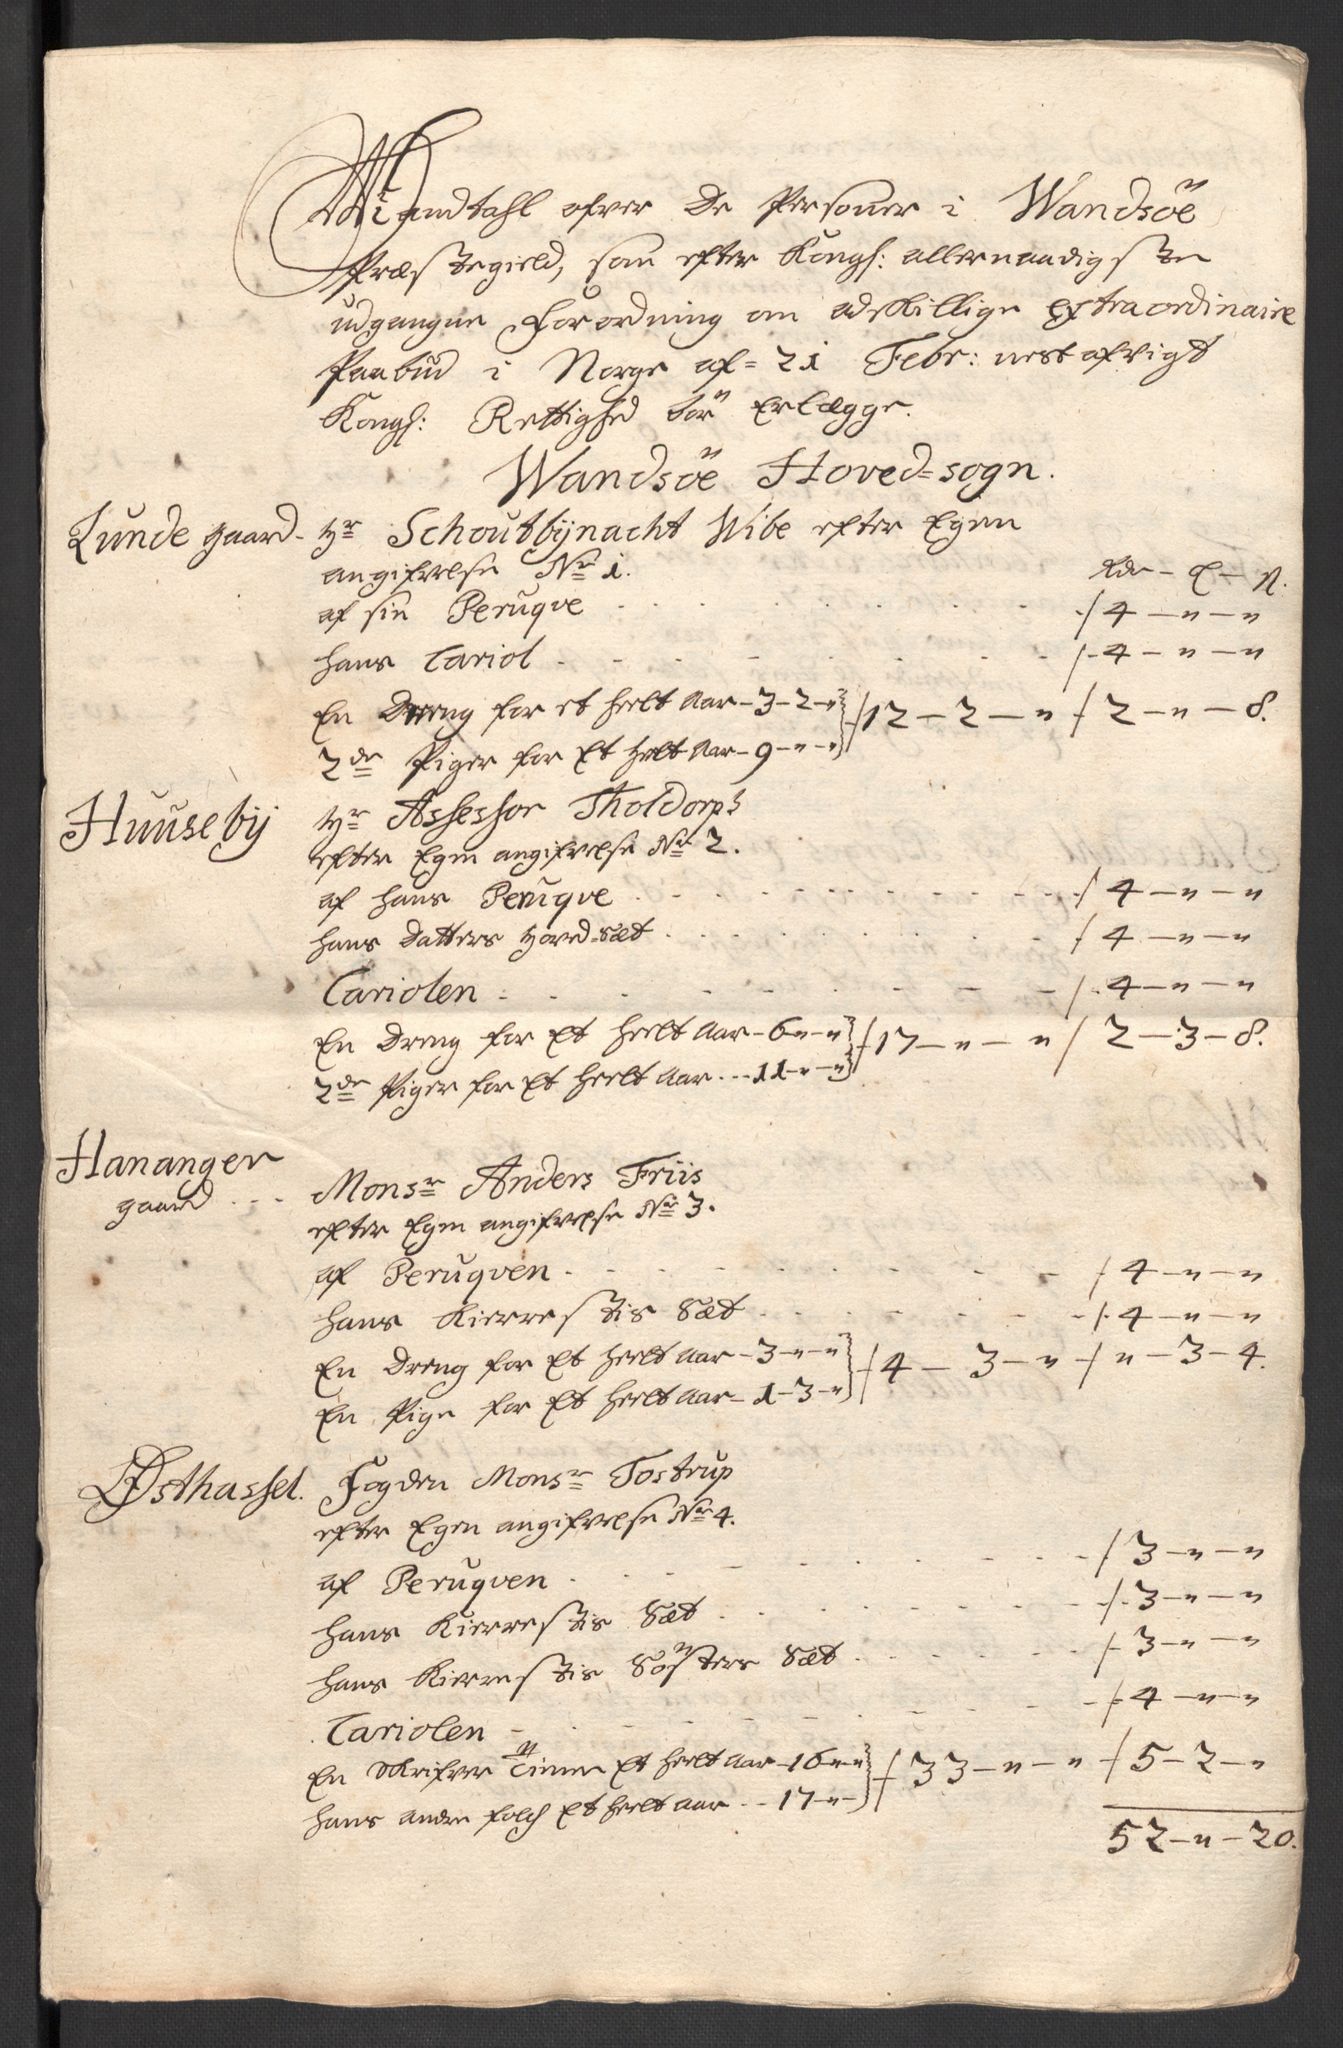 Mandtahl ofver De Persouer i Wandsöe
Præstegield, som efter Kongl: allernaadigste
udgangne Forordning om adskillige extraordinaire
Paabud i Norge af= 21 Febr: nest afvigt
Kongl: Rettighed bör Erlægge.
Wandsöe Hoved=sogn.
Lunde gaard- Hr Schoutbijnacht Wibe efter Egen
angifvelse No 1. Rdr - ℔ - ß.
af sin Peruqve . . . / 4 - " - "
hans Cariol . . . / 4 - " - "
En Dreng for et heelt Aar - 3 - 2 - " / 12 - 2 - " / 2 - " - 8.
2de Piger for Et heelt Aar - 9 - " - "
Huuseby Hr Assessor Tholdorph
efter Egen angifvelse No 2.
af hans Peruqve . . . / 4 - " - "
hans Datters Hoved=Sæt . . . / 4 - " - "
Cariolen . . . / 4 - " - "
En Dreng for Et heelt Aar - 6 - " - " / 17 - " - " / 2 - 3 - 8.
2de Piger for Et heelt Aar - 11 - " - "
Hananger Monsr Anders Friis
gaard . . . efter Egen angifvelse No 3.
af Peruqven . . . / 4 - " - "
hans Kierrestis Sæt . . . / 4 - " - "
En Dreng for Et heelt Aar - 3 - " - " / 4 - 3 - " / " - 3 - 4.
En Pige for Et heelt Aar - 1 - 3 - "
Østhassel. Fogden Monsr Tostrup
efter Egen angifvelse No 4.
af Peruqven . . . / 3 - " - "
hans Kierrestis Sæt . . . / 3 - " - "
hans Kierrestis Sösters Sæt . . . / 3 - " - "
Cariolen . . . / 4 - " - "
En Skrifver Tiener Et heelt Aar - 16 - " - " / 33 - " - " / 5 - 2 - "
hans andre folch Et heelt aar - 17 - " -
52 - " - 20.